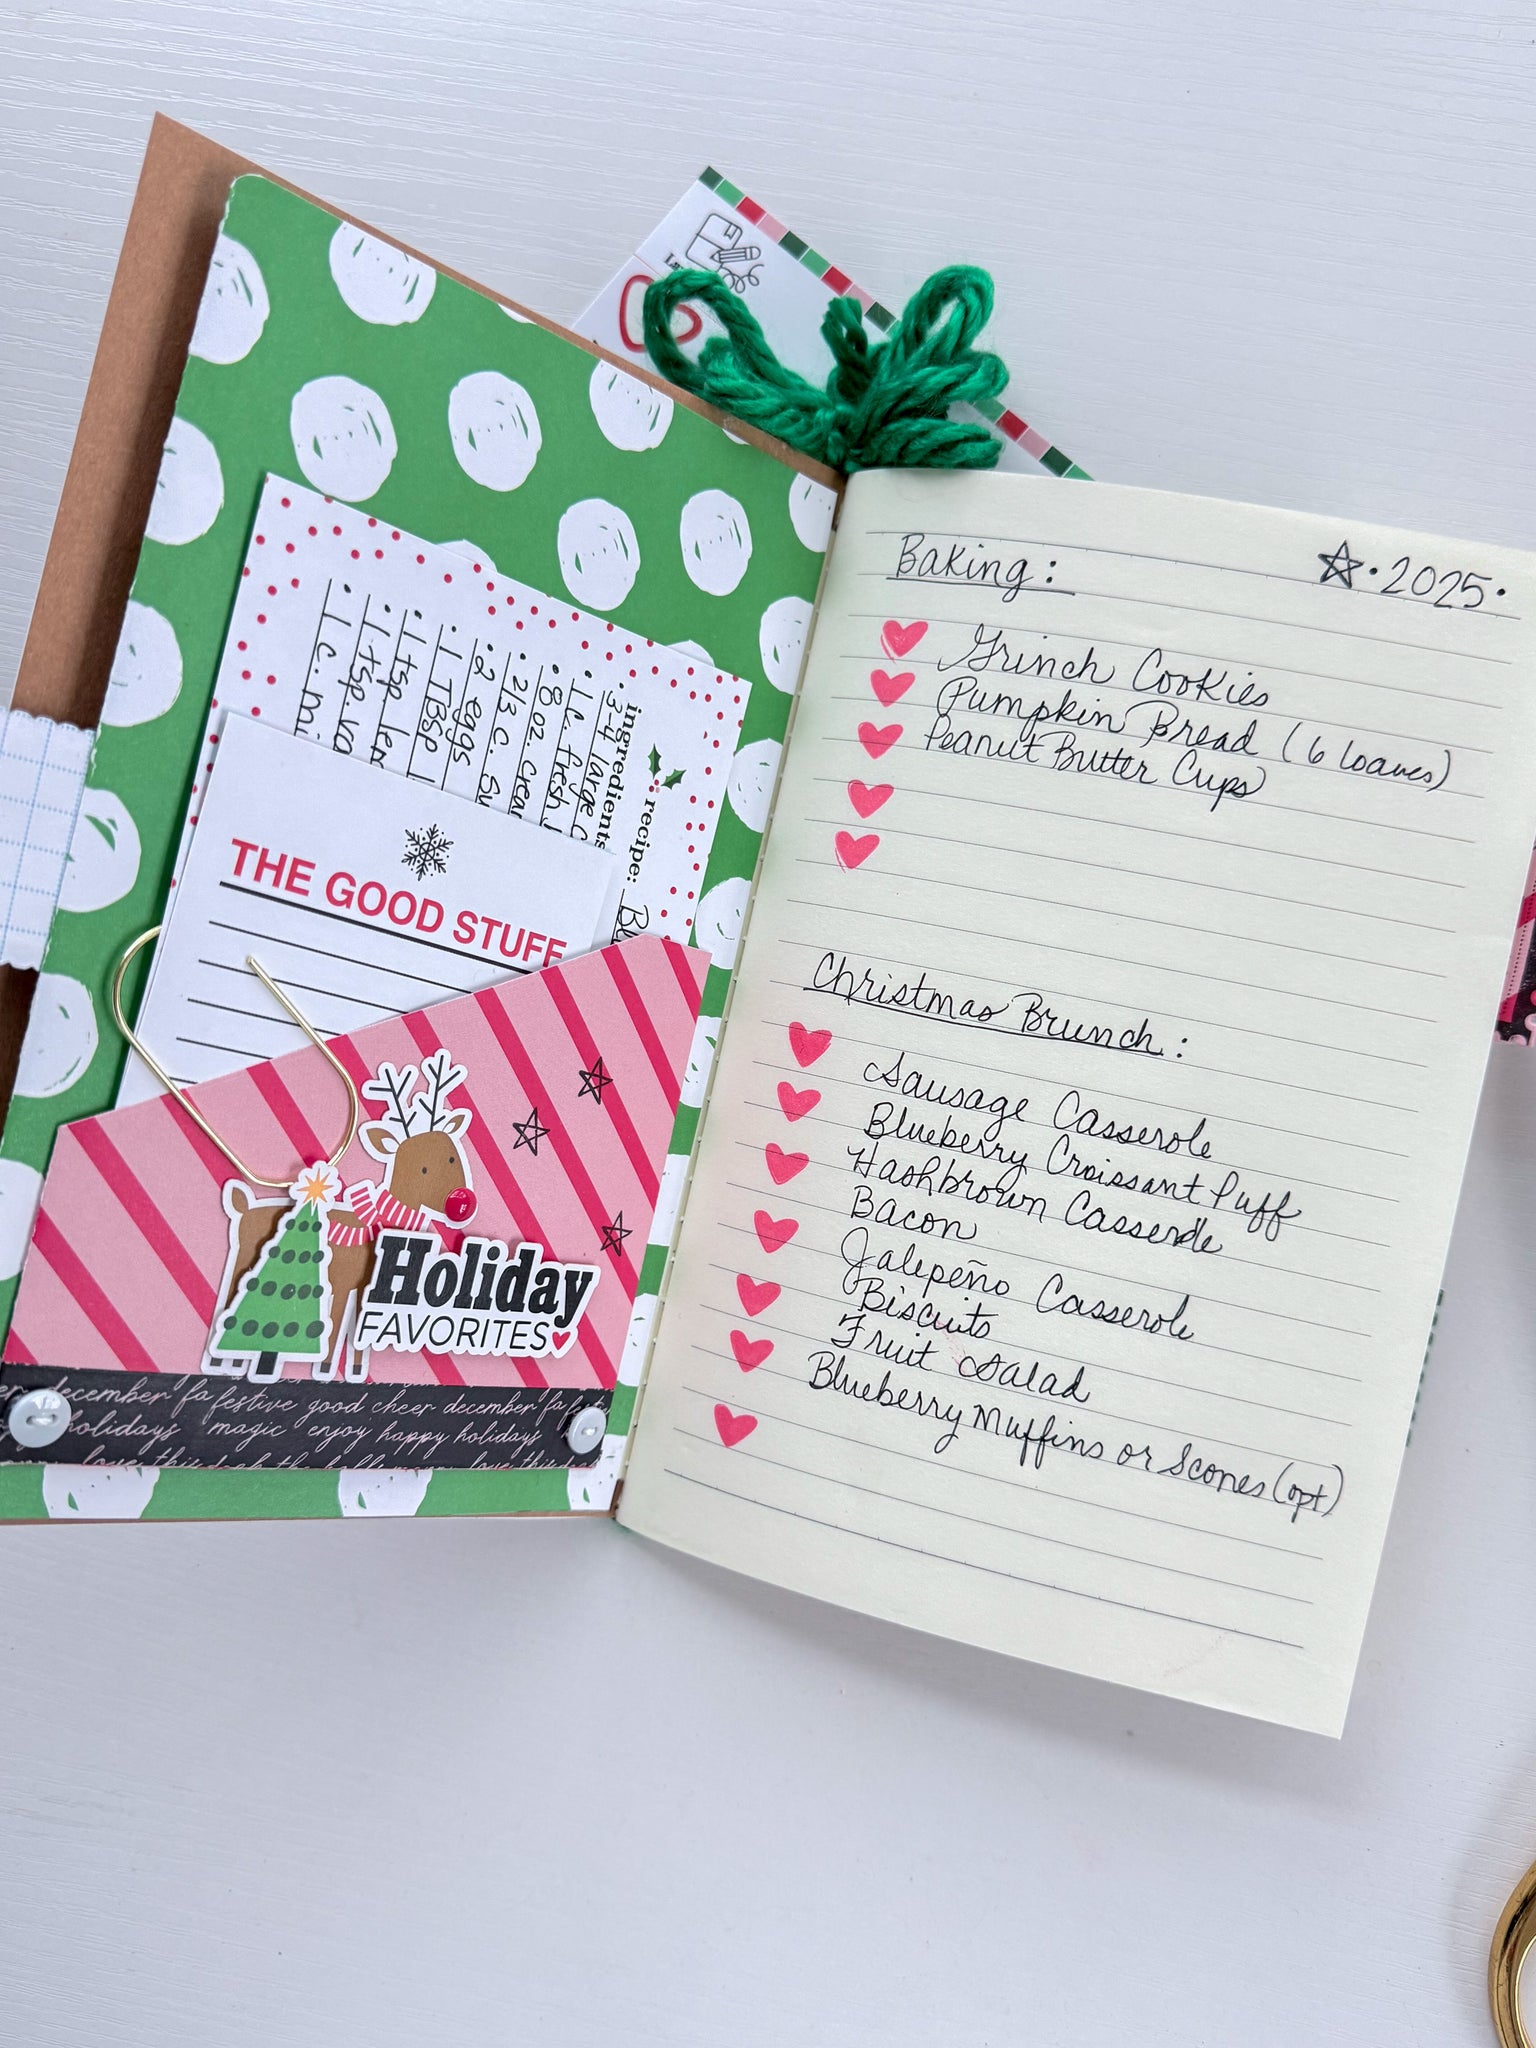 Baking:
☆ • 2025 •
Grinch Cookies
Pumpkin Bread (6 loaves)
Peanut Butter Cups
Christmas Brunch:
Sausage Casserole
Blueberry Croissant Puff
Hashbrown Casserole
Bacon
Jalepeño Casserole
Biscuits
Fruit Salad
Blueberry Muffins or Scones (opt)
recipe:
ingredients
• 3-4 large
• 1 c. fresh
• 8 oz.
• 2/3 c.
• 2 eggs
• 1 TBSP
• 1 tsp
• 1 tsp.
• 1 c.
THE GOOD STUFF
Holiday
FAVORITES
december fa festive good cheer december fa
holidays magic enjoy happy holidays